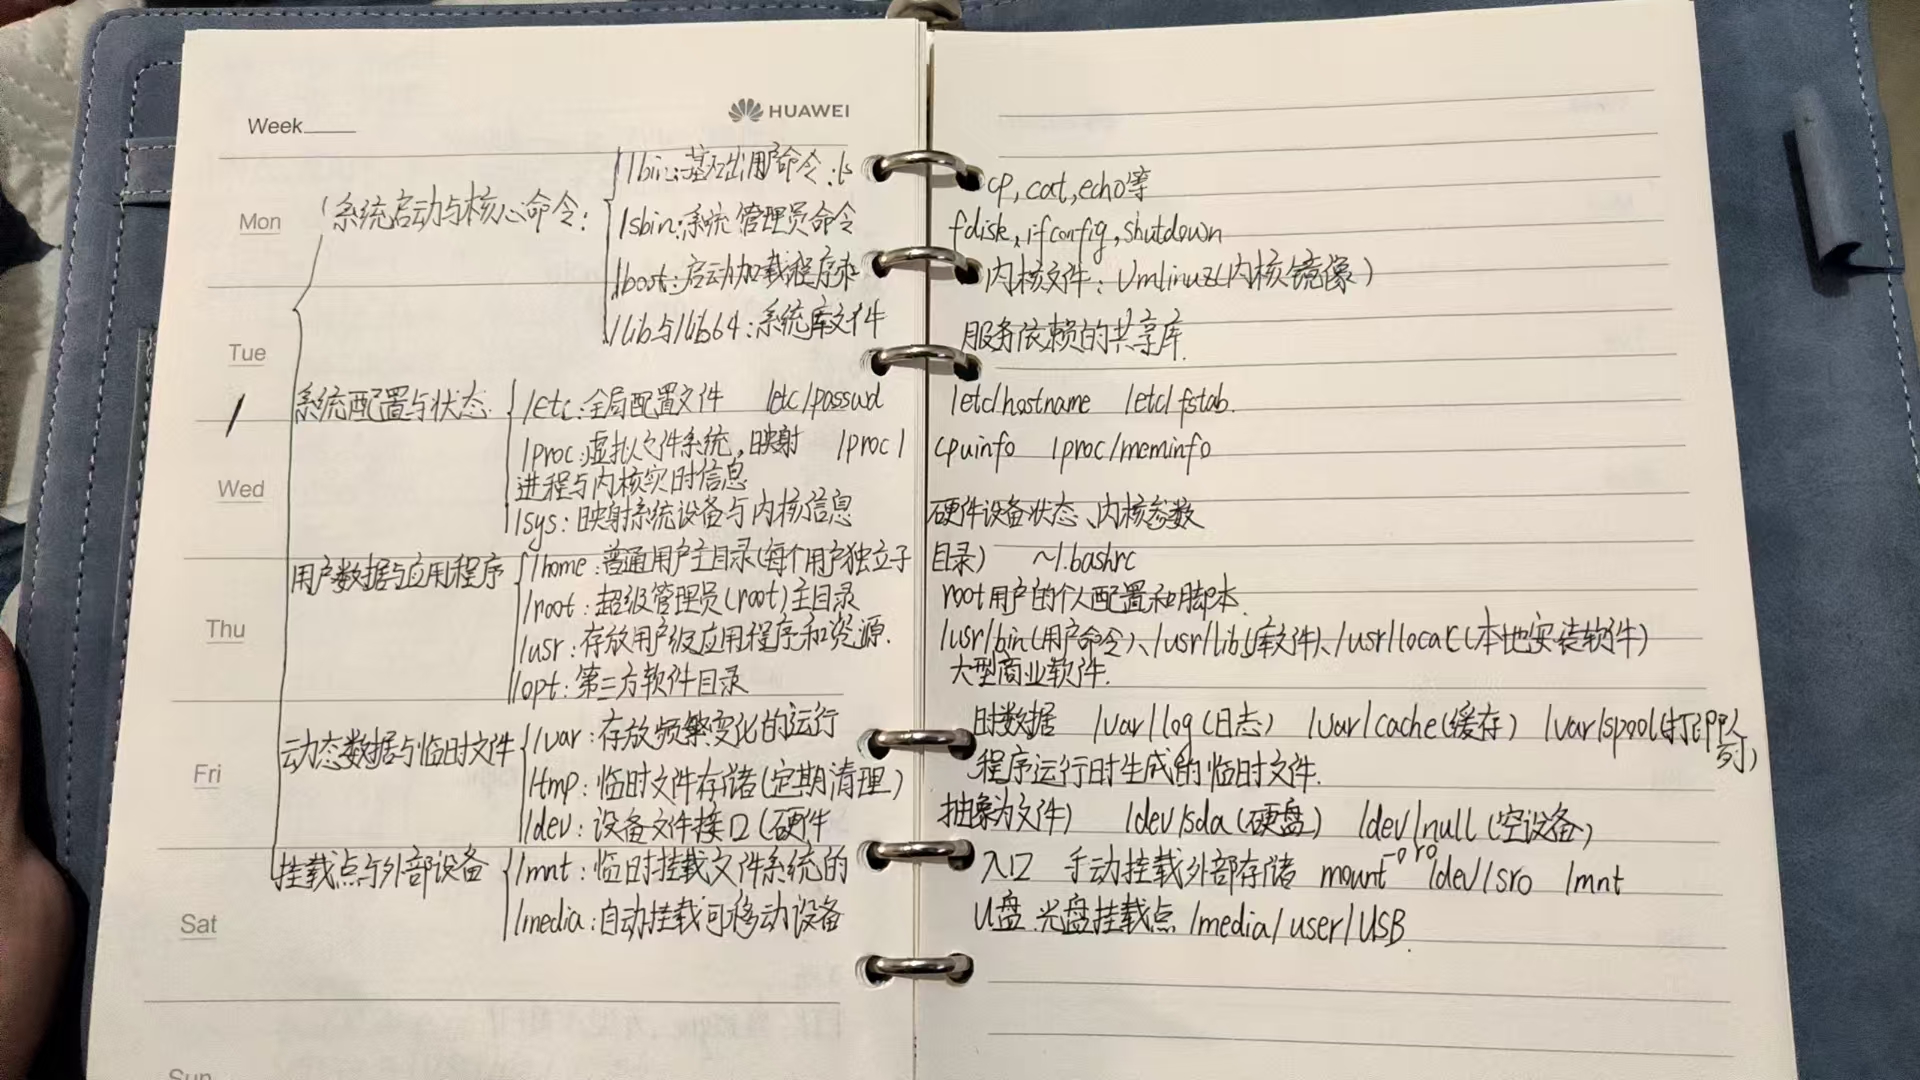 Week
HUAWEI
Mon
Tue
Wed
Thu
Fri
Sat
Sun
/
系统启动与核心命令:
/bin:基础用户命令:ls cp,cat,echo等
/sbin:系统管理员命令 fdisk,ifconfig,shutdown
/boot:启动加载程序和 内核文件:vmlinuz(内核镜像)
/lib与/lib64:系统库文件 服务依赖的共享库.
系统配置与状态.
/etc:全局配置文件 /etc/passwd /etc/hostname /etc/fstab.
/proc:虚拟文件系统,映射 /proc/ cpuinfo /proc/meminfo
进程与内核实时信息
/sys:映射系统设备与内核信息 硬件设备状态、内核参数
用户数据与应用程序
/home:普通用户主目录(每个用户独立子 目录) ~/.bashrc
/root:超级管理员(root)主目录 root用户的个人配置和脚本.
/usr:存放用户级应用程序和资源. /usr/bin(用户命令)、/usr/lib(库文件)、/usr/local(本地安装软件)
/opt:第三方软件目录 大型商业软件.
动态数据与临时文件
/var:存放频繁变化的运行 时数据 /var/log(日志) /var/cache(缓存) /var/spool(打印队列)
/tmp:临时文件存储(定期清理) 程序运行时生成的临时文件.
/dev:设备文件接口(硬件 抽象为文件) /dev/sda(硬盘) /dev/null(空设备)
挂载点与外部设备
/mnt:临时挂载文件系统的 入口 手动挂载外部存储 mount -o ro /dev/sr0 /mnt
/media:自动挂载可移动设备 U盘.光盘挂载点 /media/user/USB.